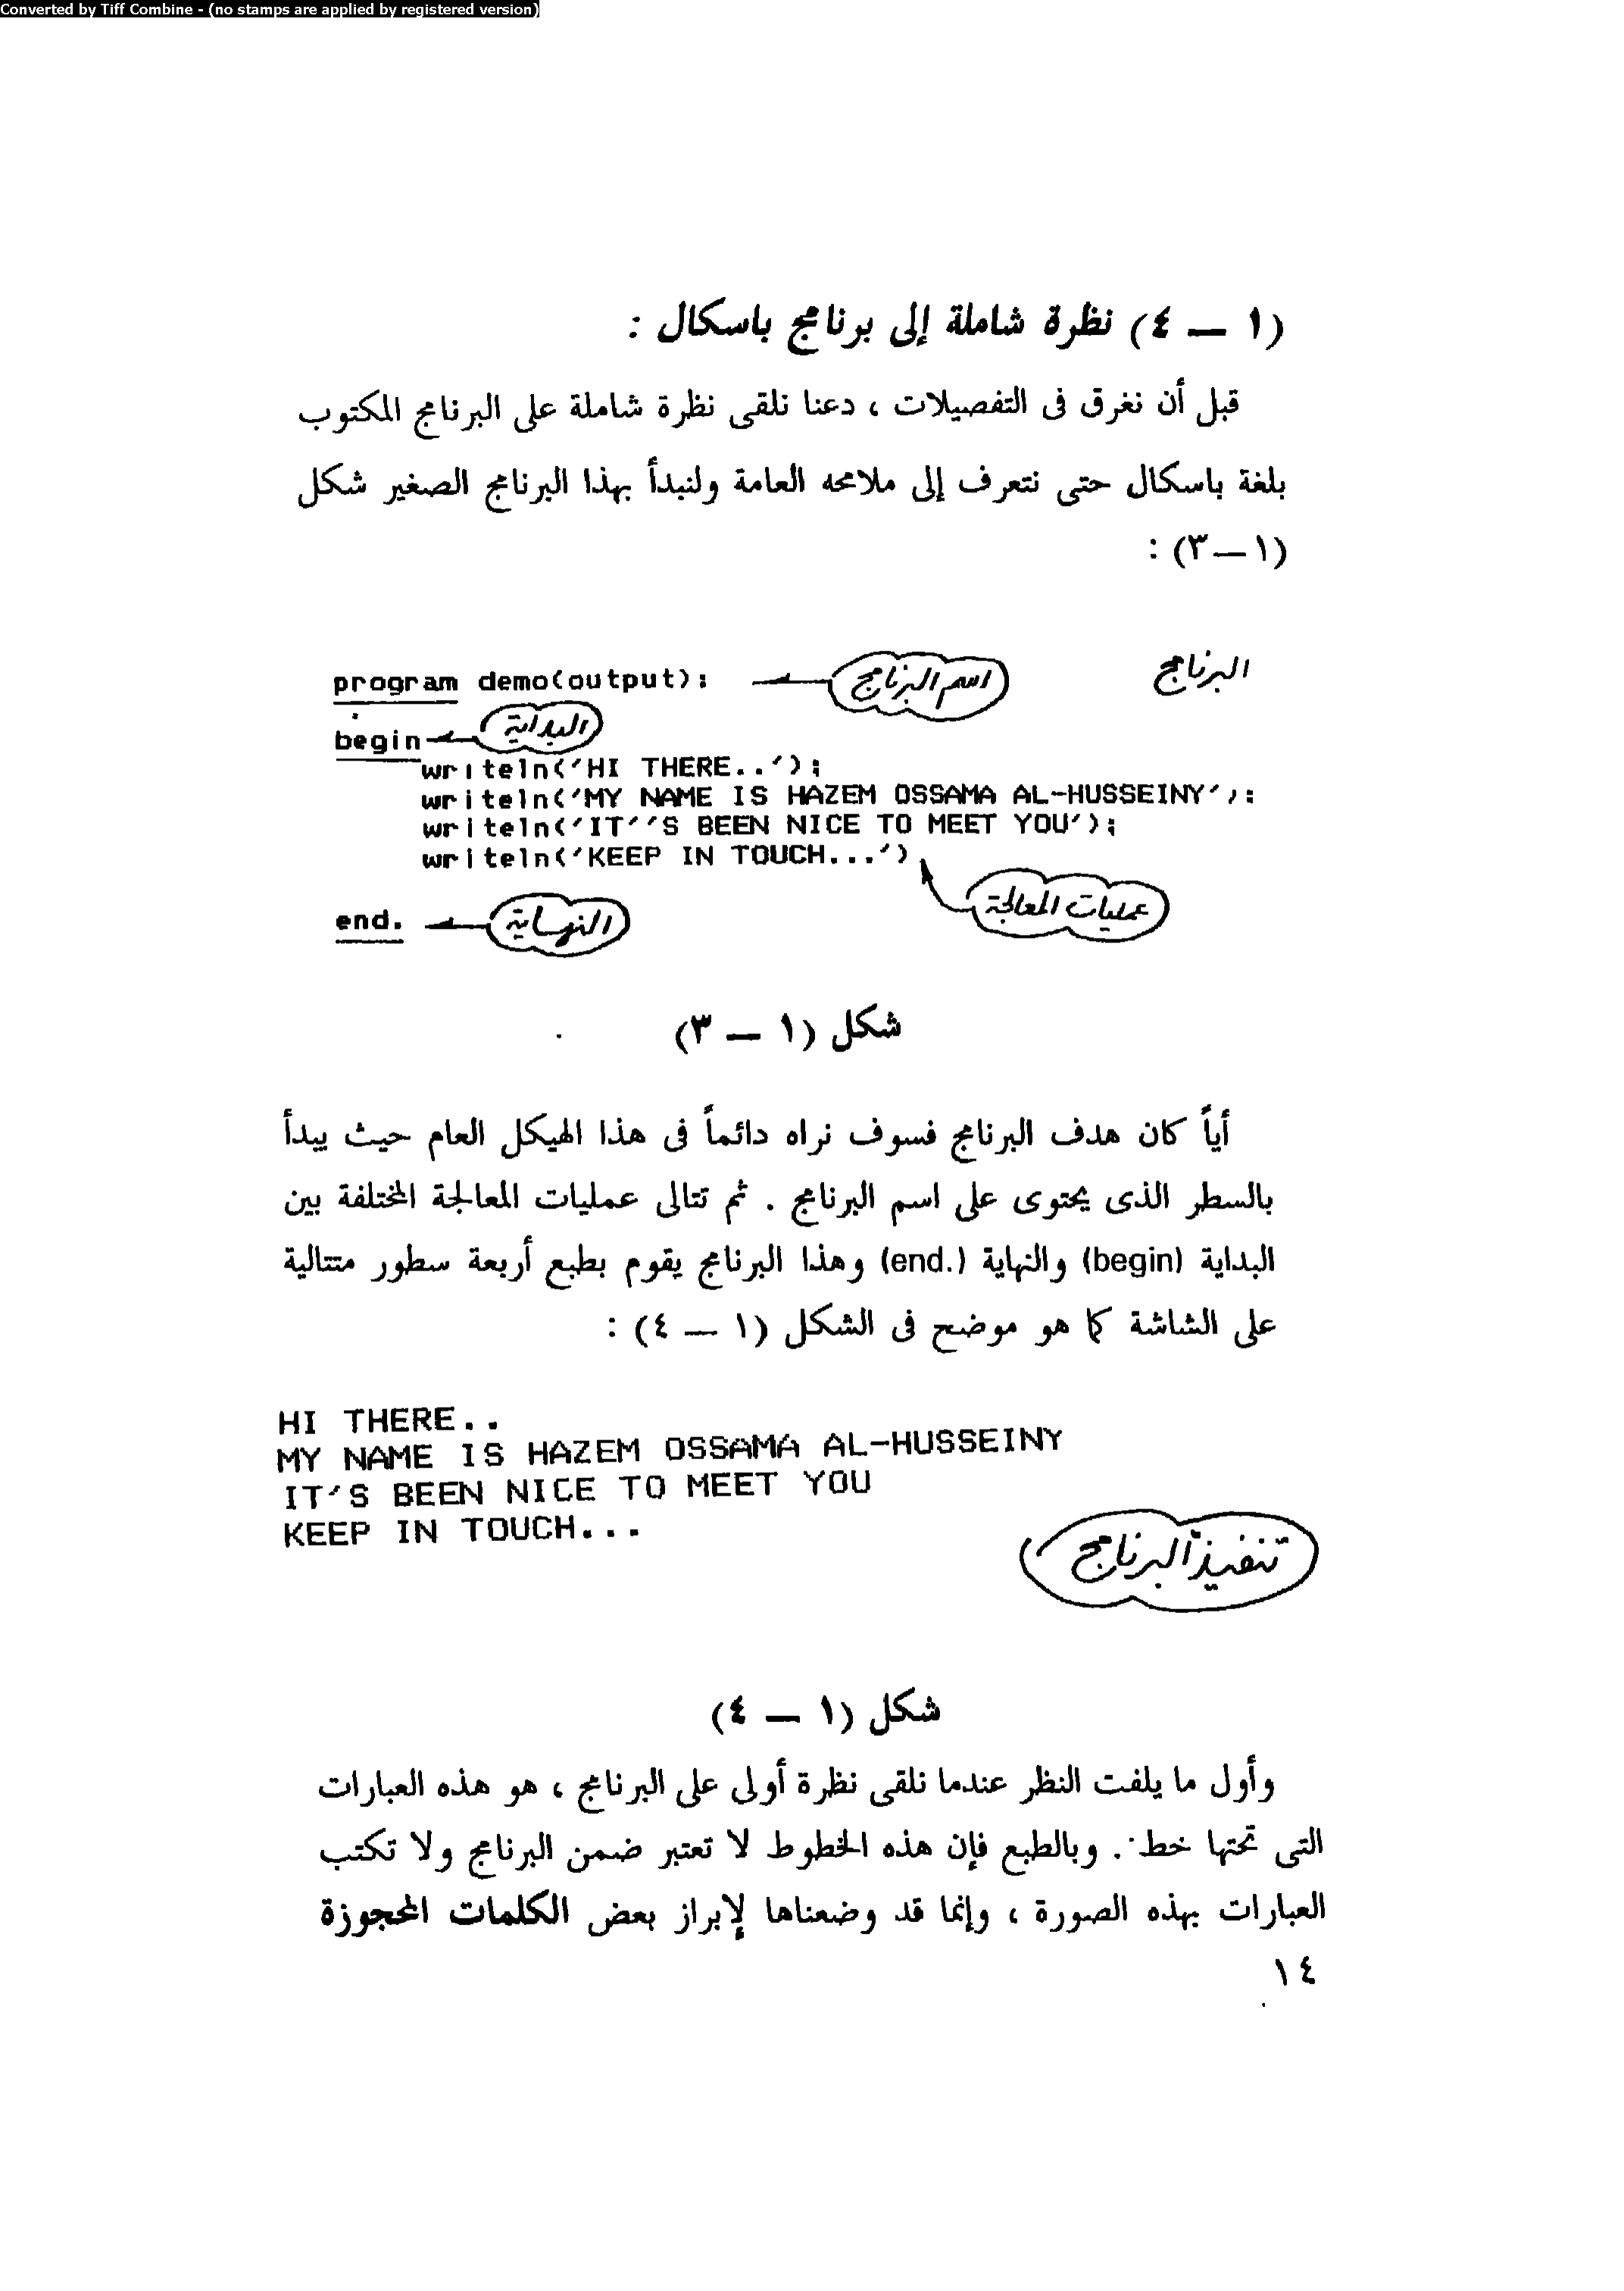 Converted by Tiff Combine - (no stamps are applied by registered version)
(١ — ٤) نظرة شاملة إلى برنامج باسكال :
قبل أن نغرق فى التفصيلات ، دعنا نلقى نظرة شاملة على البرنامج المكتوب
بلغة باسكال حتى نتعرف إلى ملامحه العامة ولنبدأ بهذا البرنامج الصغير شكل
(١ — ٣) :
البرنامج
program demo(output);
اسم البرنامج
begin
البداية
writeln('HI THERE..');
writeln('MY NAME IS HAZEM OSSAMA AL-HUSSEINY');
writeln('IT''S BEEN NICE TO MEET YOU');
writeln('KEEP IN TOUCH...')
عمليات المعالجة
end.
النهاية
شكل (١ — ٣)
أياً كان هدف البرنامج فسوف نراه دائماً فى هذا الهيكل العام حيث يبدأ
بالسطر الذى يحتوى على اسم البرنامج . ثم تتالى عمليات المعالجة المختلفة بين
البداية (begin) والنهاية (end.) وهذا البرنامج يقوم بطبع أربعة سطور متتالية
على الشاشة كما هو موضح فى الشكل (١ — ٤) :
HI THERE..
MY NAME IS HAZEM OSSAMA AL-HUSSEINY
IT'S BEEN NICE TO MEET YOU
KEEP IN TOUCH...
تنفيذ البرنامج
شكل (١ — ٤)
وأول ما يلفت النظر عندما نلقى نظرة أولى على البرنامج ، هو هذه العبارات
التى تحتها خط . وبالطبع فإن هذه الخطوط لا تعتبر ضمن البرنامج ولا تكتب
العبارات بهذه الصورة ، وإنما قد وضعناها لإبراز بعض الكلمات المحجوزة
١٤